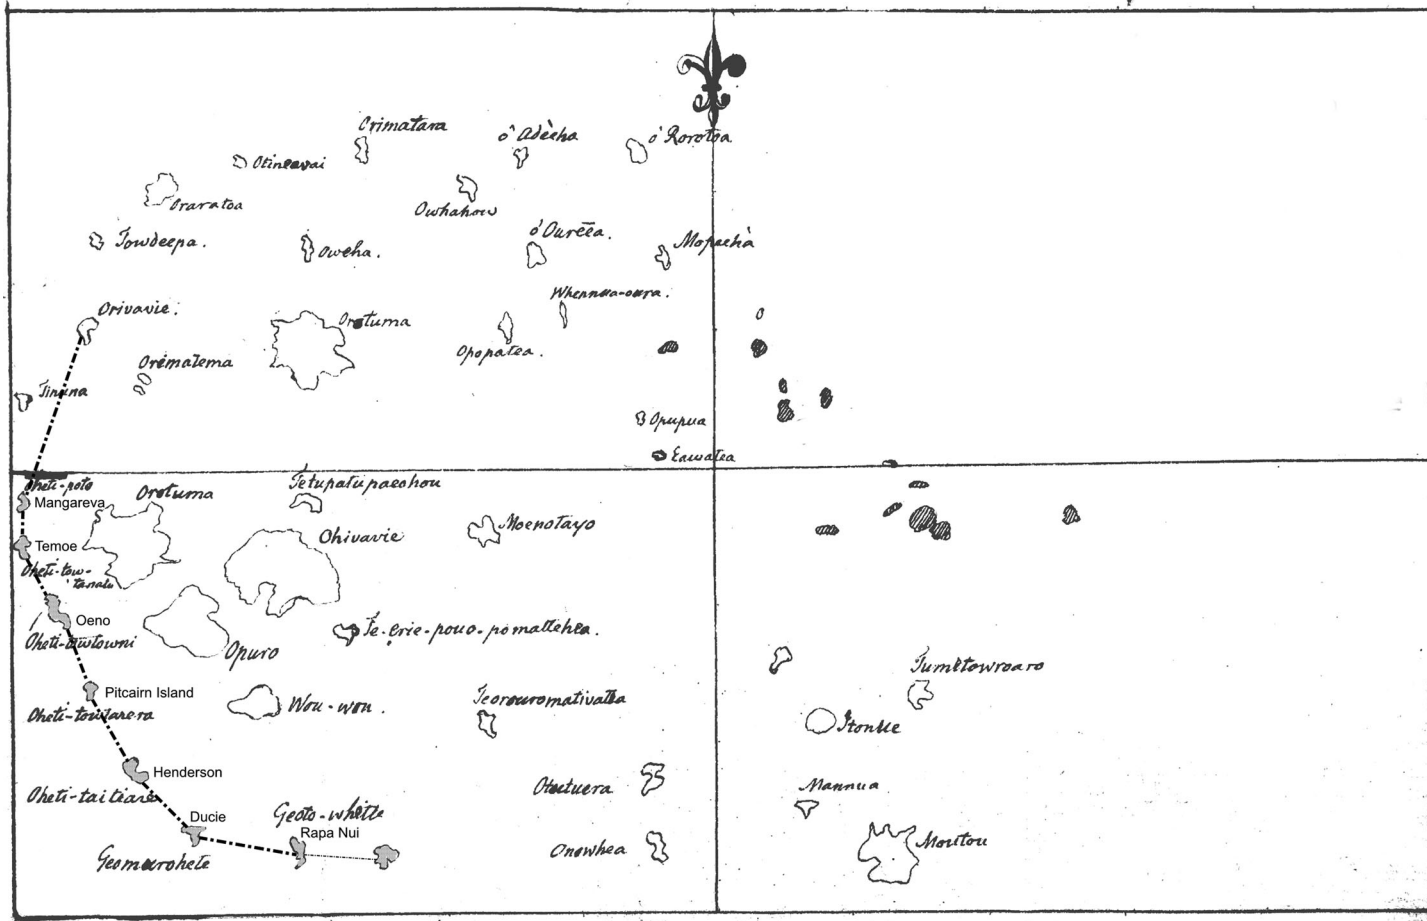 Orimatara
ô Adèeha
ó Rorotoa
Otineavai
Oraratoa
Owhahow
ó Oureea
Towdeepa.
Oweha.
Mopeehà
Whennua-oura.
Orivavie.
Orotuma
Opopatea.
Orematema
Tinuna
Opupua
Eawatea
Oheti-poto
Mangareva
Orotuma
Tetupatupaeohou
Ohivavie
Moenotayo
Temoe
Oheti-tow-
tanalu
Oeno
Oheti-towtowni
Opuro
Te-erie-pouo-pomattehea.
Tumetowroaro
Pitcairn Island
Oheti-towtarera
Wou-wou.
Teorouromativatea
Itonue
Henderson
Oheti-taiteare
Otutuera
Mannua
Ducie
Geoto-whitte
Rapa Nui
Geomarohete
Onowhea
Moutou